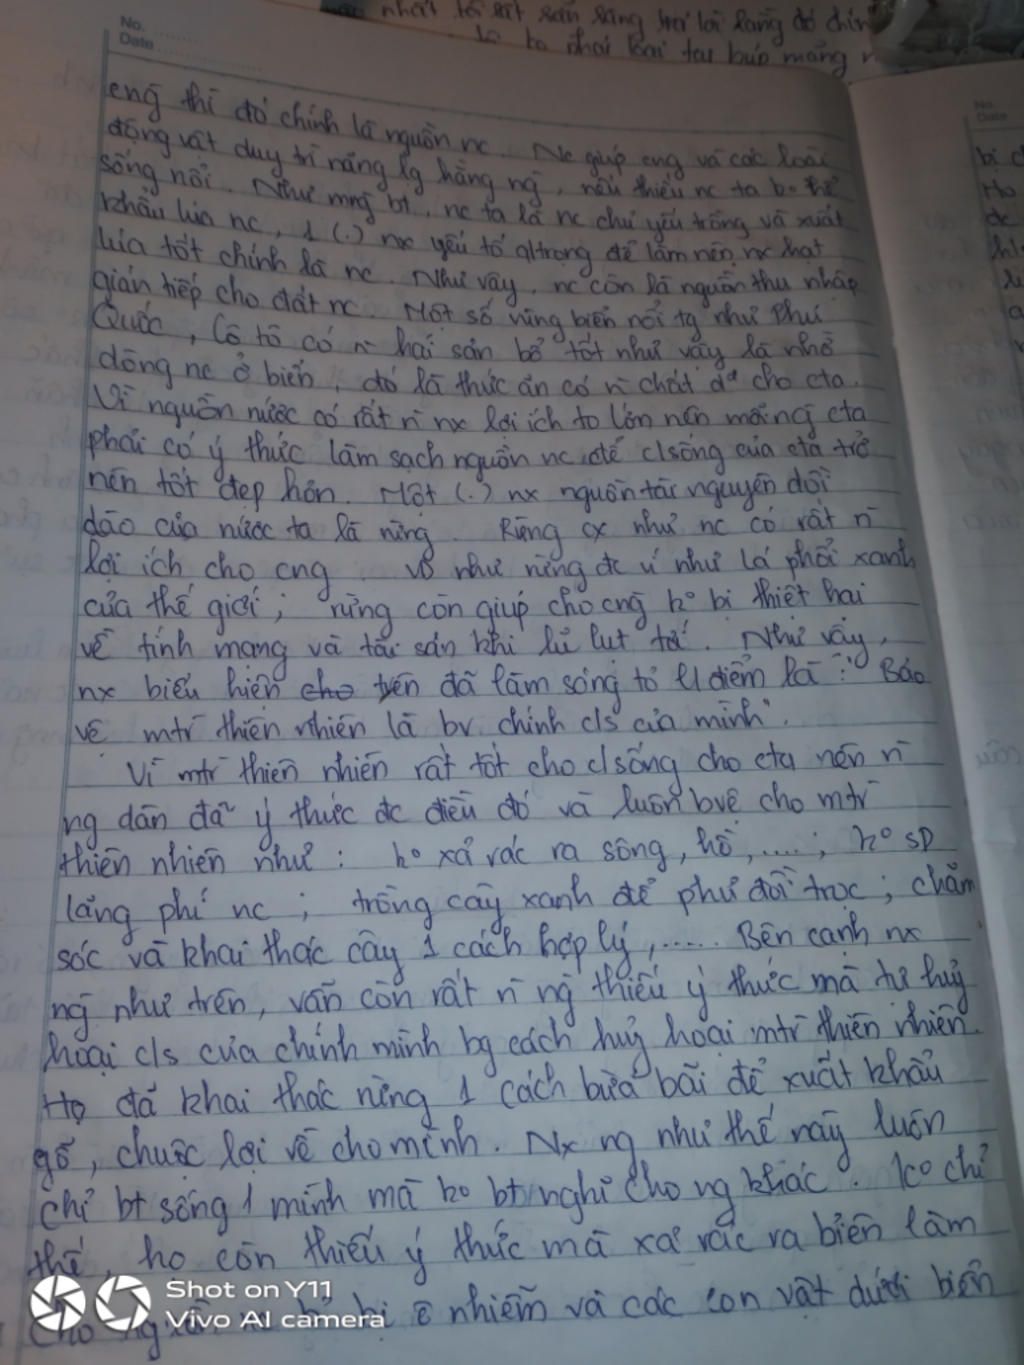 nhất tôi sẽ sẵn sàng trả lời rằng đó chín
phải loài tay búp măng
No. ........
Date ................
eng thì đó chính là nguồn nc. Nc giúp cng và các loài
động vật duy trì năng lg hằng ng, nếu thiếu nc ta ko thể
sống nổi. Như mng bt, nc ta là nc chủ yếu trồng và xuất
khẩu lúa nc, 1 (.) nx yếu tố qtrọng để làm nên nx hạt
lúa tốt chính là nc. Như vậy, nc còn là nguồn thu nhập
gián tiếp cho đất nc. Một số vùng biển nổi tg như Phú
Quốc, Cô tô có n hải sản bổ tốt như vậy là nhờ
dòng nc ở biển, đó là thức ăn có n chất d² cho cta.
Vì nguồn nước có rất n nx lợi ích to lớn nên mỗi ng cta
phải có ý thức làm sạch nguồn nc để c/sống của cta trở
nên tốt đẹp hơn. Một (.) nx nguồn tài nguyên dồi
dào của nước ta là rừng. Rừng cx như nc có rất n
lợi ích cho cng. vd như rừng đc ví như lá phổi xanh
của thế giới; rừng còn giúp cho cng ko bị thiệt hại
về tính mạng và tài sản khi lũ lụt tới. Như vậy,
nx biểu hiện cho trên đã làm sáng tỏ q/điểm là : " Bảo
vệ mtr thiên nhiên là bv chính c/s của mình".
Vì mtr thiên nhiên rất tốt cho c/sống cho cta nên n
ng dân đã ý thức đc điều đó và luôn bvệ cho mtr
thiên nhiên như : ko xả rác ra sông, hồ, .... ; ko SD
lãng phí nc ; trồng cây xanh để phủ đồi trọc ; chăm
sóc và khai thác cây 1 cách hợp lý, ..... Bên cạnh nx
ng như trên, vẫn còn rất n ng thiếu ý thức mà tự huỷ
hoại c/s của chính mình bg cách huỷ hoại mtr thiên nhiên.
Họ đã khai thác rừng 1 cách bừa bãi để xuất khẩu
gỗ, chuộc lợi về cho mình. Nx ng như thế này luôn
chỉ bt sống 1 mình mà ko bt nghĩ cho ng khác. Ko chỉ
thế, họ còn thiếu ý thức mà xả rác ra biển làm
cho bị ô nhiễm và các con vật dưới biển
Shot on Y11
Vivo AI camera
No.
Date